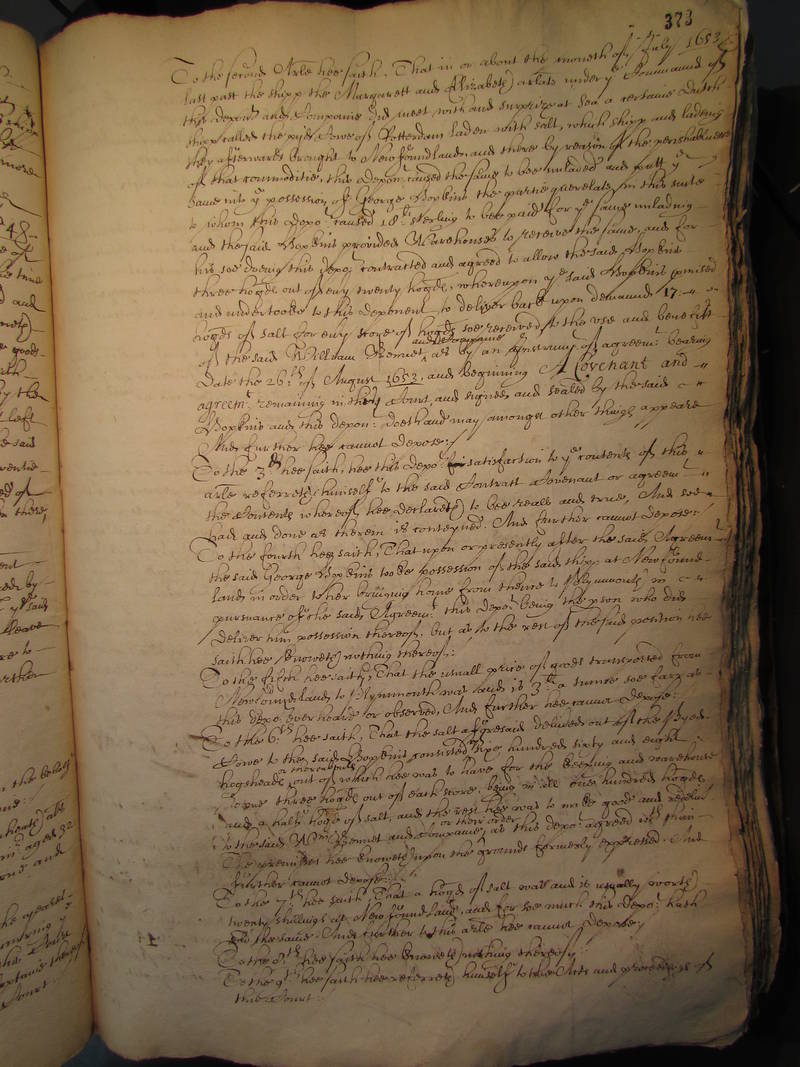 373
To the second Arle hee saith, That in or about the moneth of July 1653
last past the shipp the Margarett and Elizabeth arlate under ye Command of
this depont and Companie did meet with and surprize at sea a certaine Dutch
shipp called the pyed Cowe of Rotterdam laden with salt, which shipp and ladeing
they afterwards brought to Newfoundland and there by reason of the perishablenes
of that commoditie, this depont caused the same to bee unladed and putt ye
same into ye possession of George Hopkins the partie querelate in this suite
to whom this depot caused 18li sterling to bee paid for ye same unlading
and the said Hopkins provided Warehouses to receive the same, and for
his soe doeing this depot contracted and agreed to allow the said Hopkins
three hogds out of every twenty hogds, whereupon ye said Hopkins promised
and undertooke to this deponent to deliver back upon demaund 17
hogds of salt for every store of hogds soe received to the use and benefitt
of the said William Bennet and Companie as by an Instrumt of agreemt bearing
Date the 26th of August 1653, and beginning A Covenant and
agreemt remaining in this Court, and signed and sealed by the said
Hopkins and this depont doeth and may amongst other things appeare
And further hee cannot depose:/
To the 3d hee saith, hee this depot for satisfaction to ye contents of this
arle referreth himselfe to the said Contract Covenant or agreemt
the Contents whereof hee declareth to bee reall and true, And soe
had and done as therein is conteyned. And further cannot depose:/
To the fourth hee saith, That upon or presently after the said Agreemt
the said George Hopkins tooke possession of the said shipp at Newfound-
land in order to her bringing home from thence to Plymmouth in
pursuance of the said Agreemt this depot being the pson who did
deliver him possession thereof, but as to the rest of the said position hee
saith hee knoweth nothing thereof:/
To the fifth hee saith, That the usuall price of goods transported from
Newfoundland to Plymmouth was and is 3li a tunne soe farr as
this depot ever heard or observed, And further hee cannot depose:
To the 6th hee saith, That the salt aforesaid delivered out of the Pyed
Cowe to the said Hopkins consisted of two hundred sixty and eight
hogsheads or thereabouts out of which hee was to have for the keeping and warehouse
roome three hogds out of each store, being in all one hundred hogds
and a halfe hogd of salt, and the rest hee was to make good and redeliver
to the said Wm Bennet and Companie, or their order as this depot agreed with him
The premisses hee knoweth upon the grounds formerly expressed. And
further cannot depose:/
To the 7th hee saith That a hogd of salt was and is usually worth
twenty shillings at Newfoundland, and for soe much this depot hath
the same. And further to this arle hee cannot depose:/
To the 8th hee saith hee knoweth nothing thereof:/
To the 9th hee saith hee referreth himselfe to the Acts and proceedings of
this Court